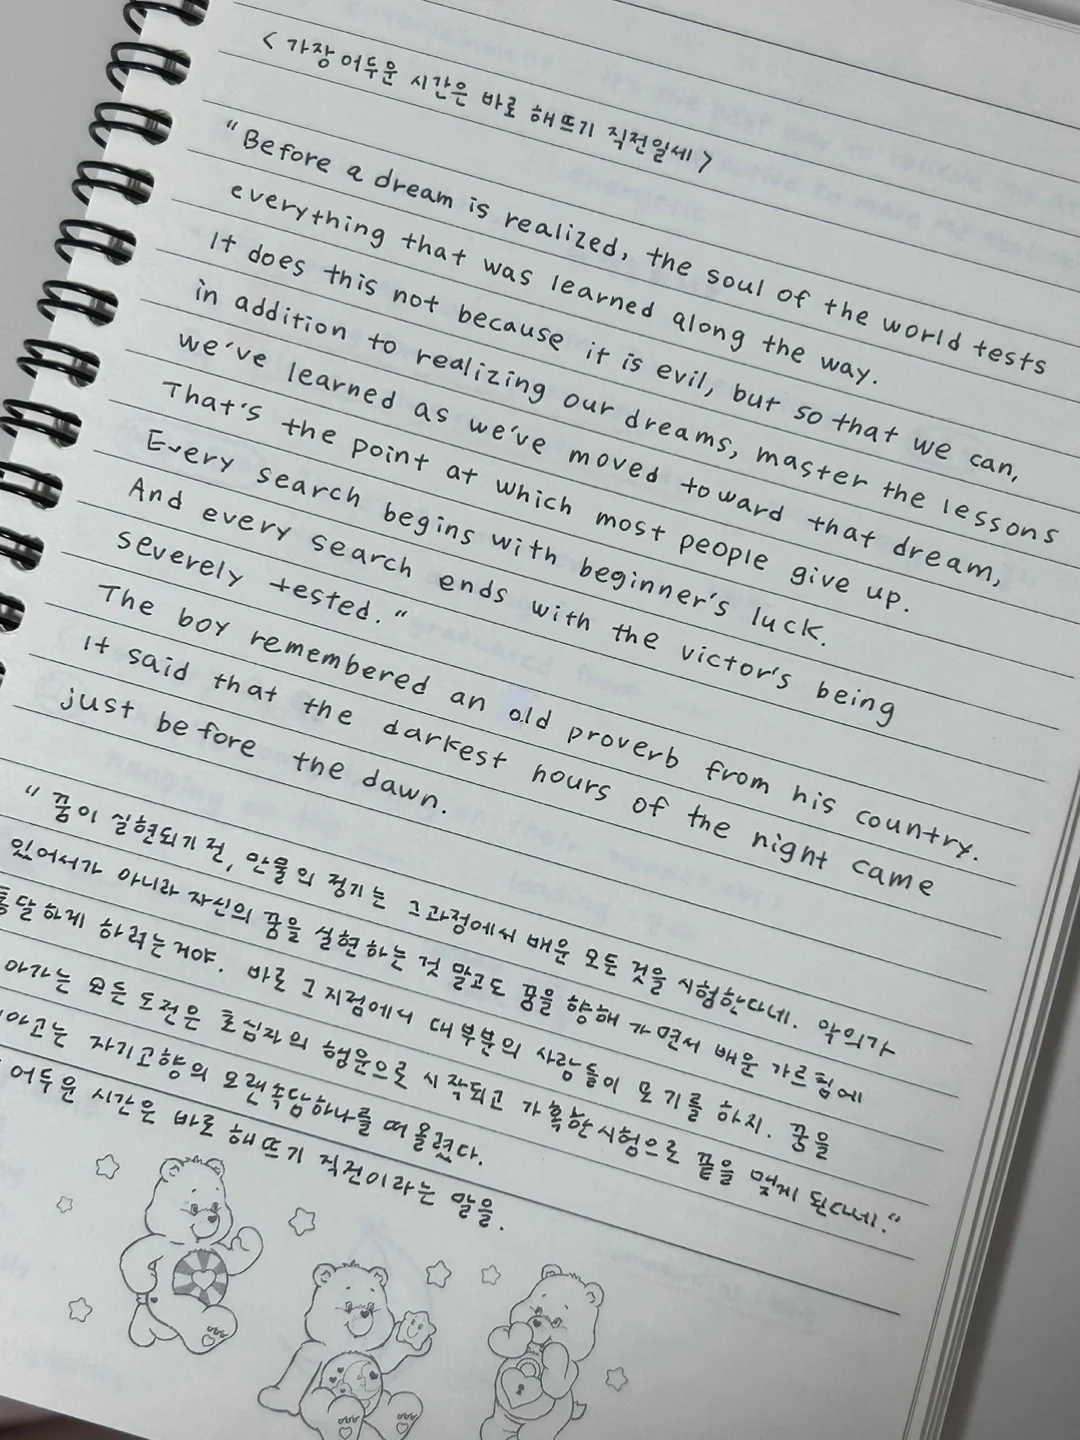 < 가장 어두운 시간은 바로 해뜨기 직전일세 >
"Before a dream is realized, the soul of the world tests
everything that was learned along the way.
It does this not because it is evil, but so that we can,
in addition to realizing our dreams, master the lessons
we've learned as we've moved toward that dream,
That's the point at which most people give up.
Every search begins with beginner's luck.
And every search ends with the victor's being
severely tested."
The boy remembered an old proverb from his country.
It said that the darkest hours of the night came
just before the dawn.
"꿈이 실현되기 전, 만물의 정기는 그 과정에서 배운 모든 것을 시험한다네. 악의가
있어서가 아니라 자신의 꿈을 실현하는 것 말고도 꿈을 향해 가면서 배운 가르침에
통달하게 하려는거야. 바로 그 지점에서 대부분의 사람들이 포기를 하지. 꿈을
아가는 모든 도전은 초심자의 행운으로 시작되고 가혹한 시험으로 끝을 맺게 된다네."
아고는 자기고향의 오랜 속담하나를 떠올렸다.
어두운 시간은 바로 해뜨기 직전이라는 말을.